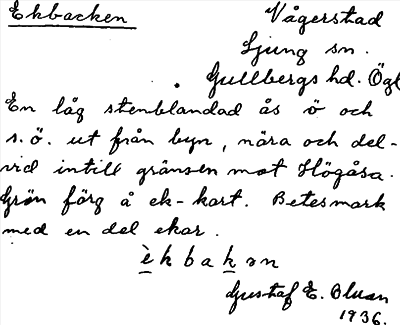 Ekbacken Vågerstad
Ljung sn.
Gullbergs hd. Ögl
En låg stenblandad ås ö och
s.ö. ut från byn, nära och del-
vid intill gränsen mot Högåsa.
Grön färg å ek-kart. Betesmark
med en del ekar.
èkbakən
Gustaf E. Olsson
1936.